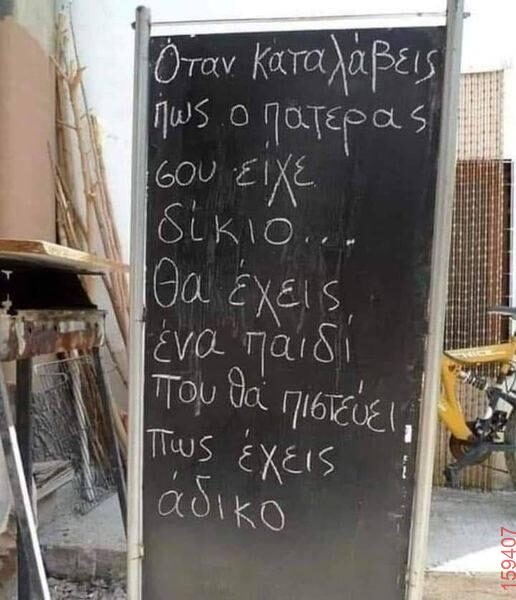 Όταν καταλάβεις
πως ο πατερας
σου είχε
δίκιο...
θα έχεις
ένα παιδί
που θα πιστεύει
πως έχεις
άδικο
159407